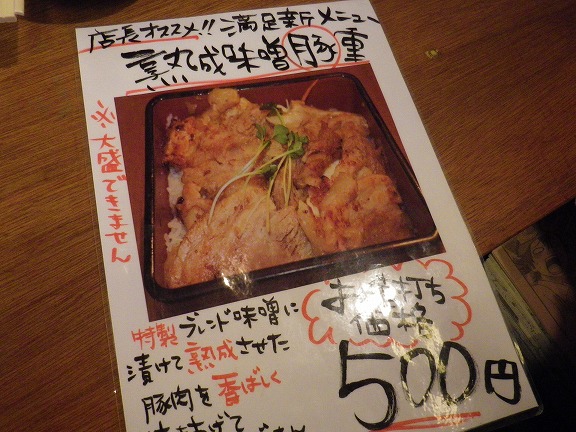 店長オススメ!!満足新メニュー
熟成味噌豚重
※大盛できません
お値打ち
価格
500円
特製ブレンド味噌に
漬けて熟成させた
豚肉を香ばしく